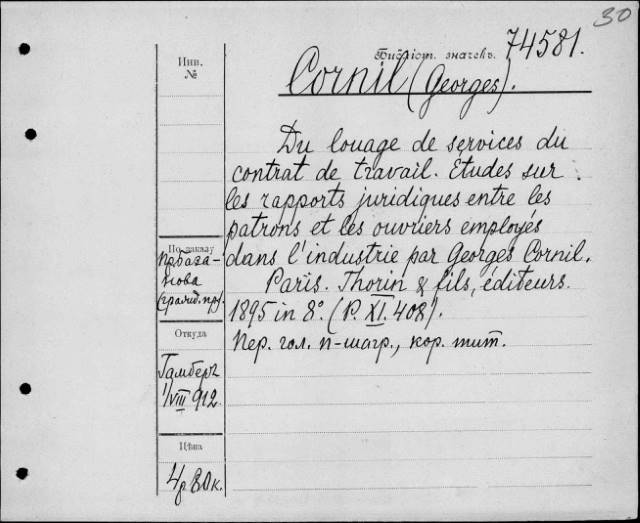 30
Библіот. значекъ. 74581.
Инв.
№
Cornil (Georges).
Du louage de services du
contrat de travail. Études sur
les rapports juridiques entre les
patrons et les ouvriers employés
dans l'industrie par Georges Cornil.
Paris. Thorin & fils, éditeurs.
1895 in 8°. (P. XI. 408).
Пер. гол. п-шагр., кор. тит.
По заказу
нова
(гражд. пр).
Откуда
Гамберг
1/VIII 912.
Цѣна
4 р 80 к.